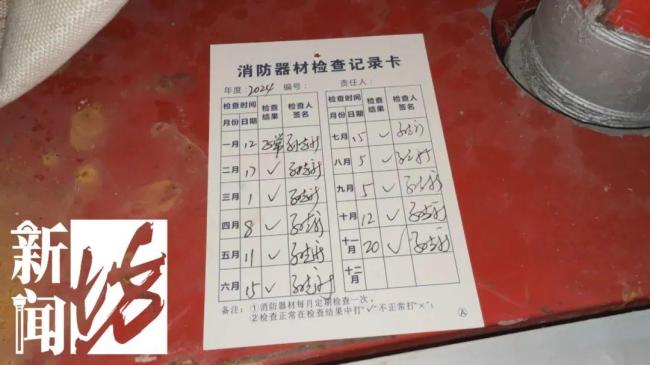 消防器材检查记录卡
年度：2024 编号： 责任人：
检查时间 检查结果 检查人签名 检查时间 检查结果 检查人签名
月份 日期 月份 日期
一月 12 正常
二月 17 ✓
三月 1 ✓
四月 8 ✓
五月 11 ✓
六月 15 ✓
七月 15 ✓
八月 5 ✓
九月 5 ✓
十月 12 ✓
十一月 20 ✓
十二月
备注：①消防器材每月定期检查一次，
②检查正常在检查结果中打"✓"不正常打"×"；
新闻坊